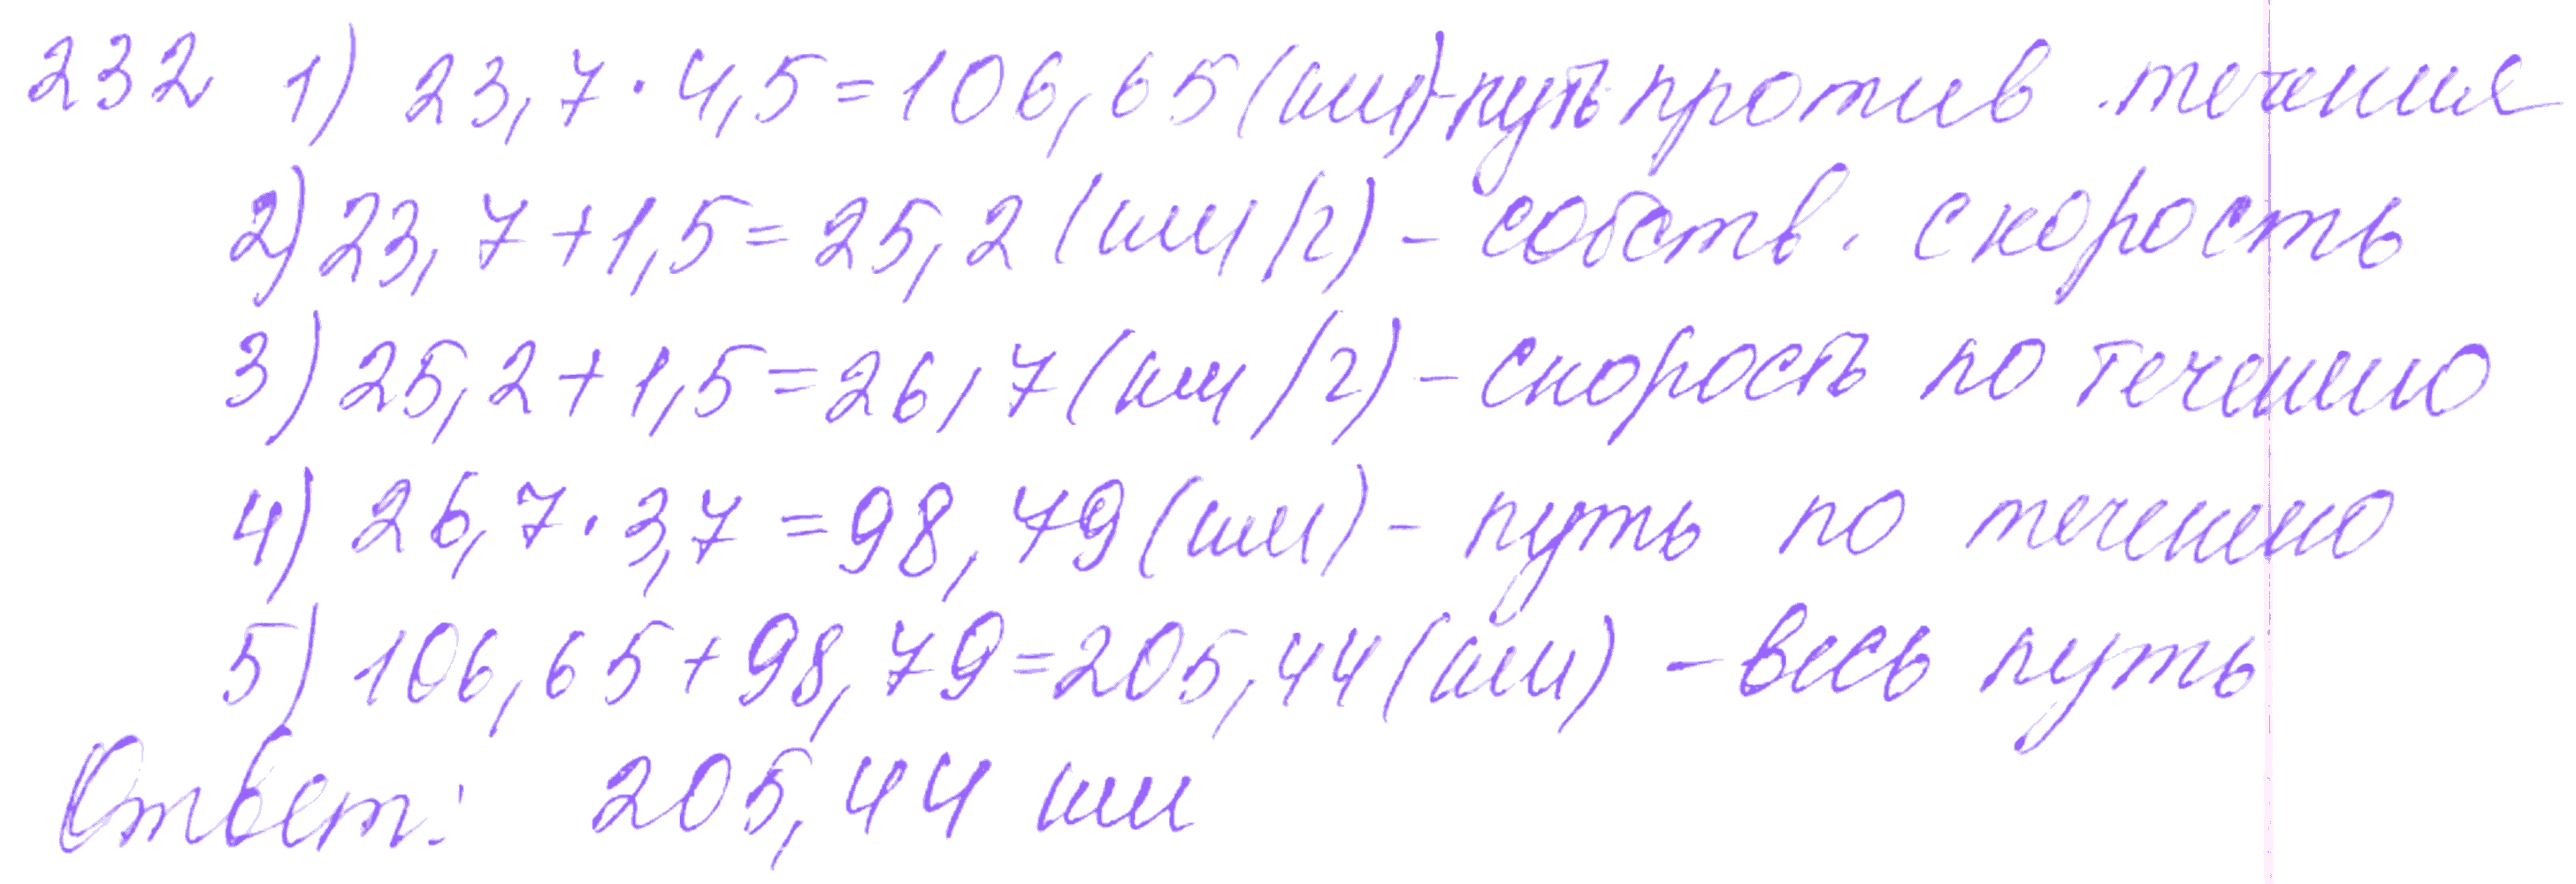 232 1) 23,7 · 4,5 = 106,65 (км) - путь против течения
2) 23,7 + 1,5 = 25,2 (км/ч) - собств. скорость
3) 25,2 + 1,5 = 26,7 (км/ч) - скорость по течению
4) 26,7 · 3,7 = 98,79 (км) - путь по течению
5) 106,65 + 98,79 = 205,44 (км) - весь путь
Ответ: 205,44 км